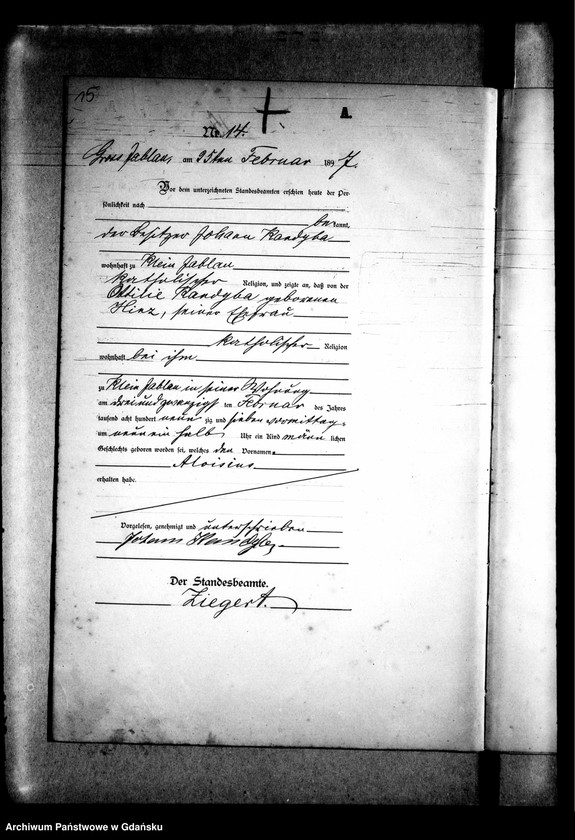 15
A.
No. 14.
Gross Jablau, am 25ten Februar 1897.
Vor dem unterzeichneten Standesbeamten erschien heute der Per-
sönlichkeit nach
bekannt,
der Besitzer Johann Kandyba
wohnhaft zu Klein Jablau
katholischer Religion, und zeigte an, daß von der
Ottilie Kandyba geborenen
Hinz, seiner Ehefrau
katholischer Religion
wohnhaft bei ihm
zu Klein Jablau in seiner Wohnung
am dreiundzwanzigsten Februar des Jahres
tausend acht hundert neunzig und sieben vormittags
um neunein halb Uhr ein Kind männlichen
Geschlechts geboren worden sei, welches den Vornamen
Aloisius
erhalten habe.
Vorgelesen, genehmigt und unterschrieben
Johann
Der Standesbeamte.
Ziegert.
Archiwum Państwowe w Gdańsku